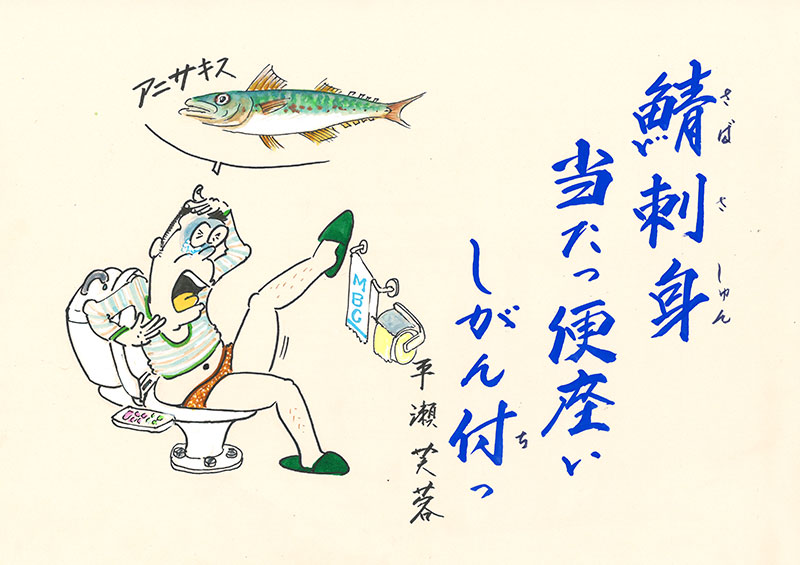 鯖刺身
さば さ しゅん
当たっ便座い
しがん付っ
ち
平瀬芙蓉
アニサキス
MBC